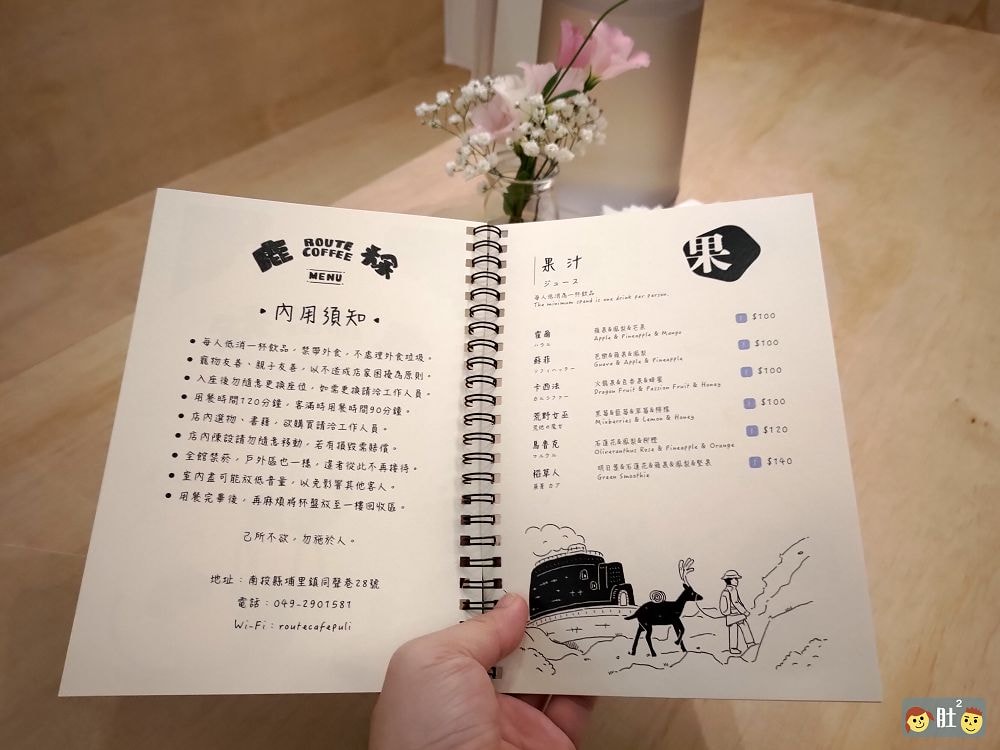 鹿 ROUTE COFFEE 琛
MENU
內用須知
每人低消一杯飲品，禁帶外食，不處理外食垃圾。
寵物友善、親子友善，以不造成店家困擾為原則。
入座後勿隨意更換座位，如需更換請洽工作人員。
用餐時間120分鐘，客滿時用餐時間90分鐘。
店內選物、書籍，欲購買請洽工作人員。
店內陳設請勿隨意移動，若有損毀需賠償。
全館禁菸，戶外區也一樣，違者從此不再接待。
室內盡可能放低音量，以免影響其他客人。
用餐完畢後，再麻煩將杯盤放至一樓回收區。
己所不欲，勿施於人。
地址：南投縣埔里鎮同聲巷28號
電話：049-2901581
Wi-Fi：routecafepuli
果
果汁
ジュース
每人低消為一杯飲品
The minimum spend is one drink per person.
霍爾 蘋果&鳳梨&芒果 $100
ハウル Apple & Pineapple & Mango
蘇菲 芭樂&蘋果&鳳梨 $100
ソフィハッター Guava & Apple & Pineapple
卡西法 火龍果&百香果&蜂蜜 $100
カルシファー Dragon Fruit & Passion Fruit & Honey
荒野女巫 黑莓&藍莓&草莓&檸檬 $100
荒地の魔女 Mixberries & Lemon & Honey
馬魯克 石蓮花&鳳梨&柳橙 $120
マルクル Oliveranthus Rose & Pineapple & Orange
稻草人 明日葉&石蓮花&蘋果&鳳梨&堅果 $140
蕪菁カブ Green Smoothie
肚2